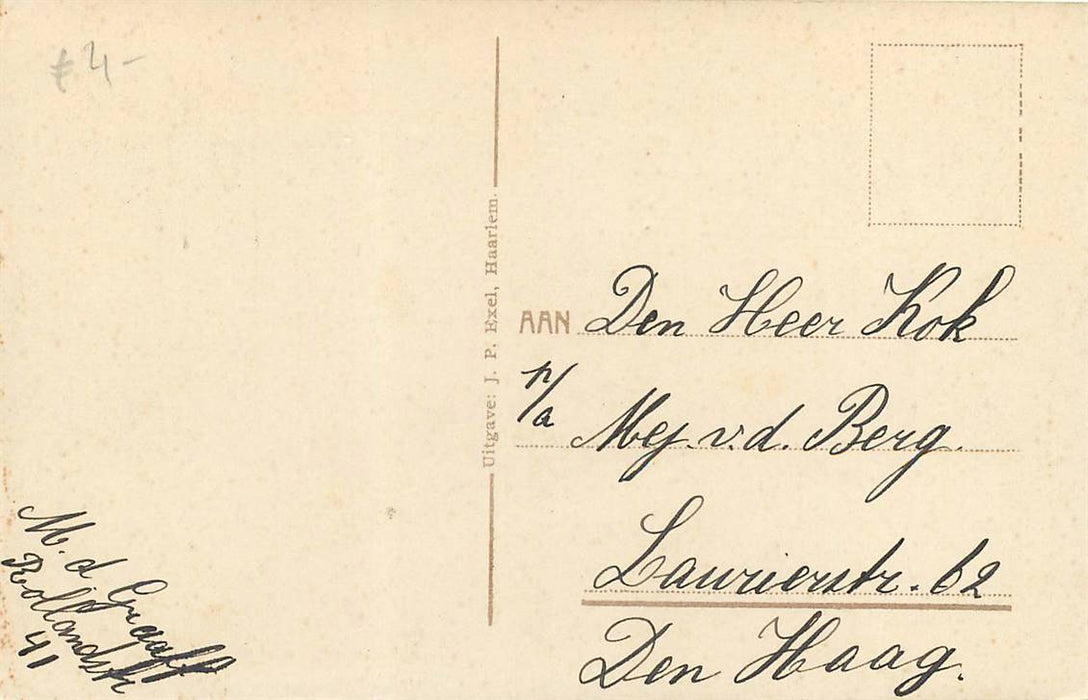 € 4,-
Uitgave: J. P. Exel, Haarlem.
AAN Den Heer Kok
p/a Mej. v. d. Berg.
Laurierstr. 62
Den Haag.
M. d Graaff
Rollandstr
41